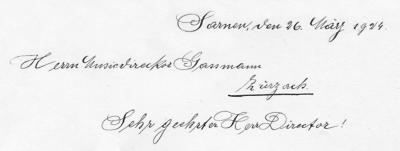 Sarnen, den 26. März 1924.
Herrn Musicdirecktor Gassmann
Zurzach.
Sehr geehrter Herr Director!